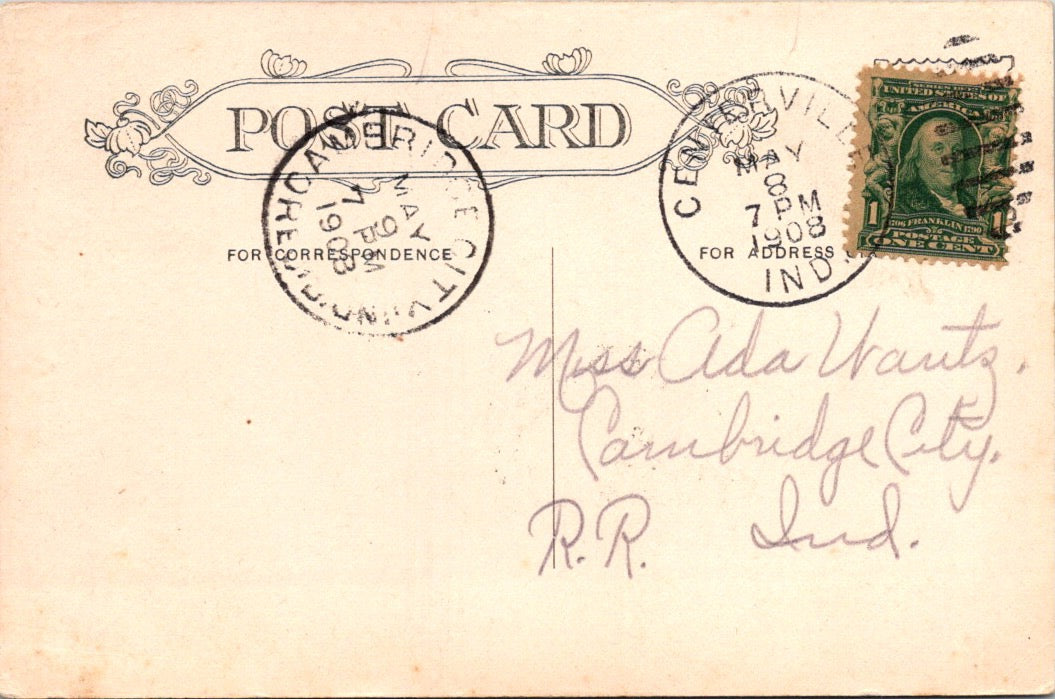 POST CARD
FOR CORRESPONDENCE
FOR ADDRESS
CAMBRIDGE CITY, IND.
MAY
9
7
1908
REC'D.
CENTERVILLE
MAY
8
7 PM
1908
IND.
SERIES 1902
UNITED STATES OF
AMERICA
1 1
1706 FRANKLIN 1790
POSTAGE
ONE CENT
Miss Ada Wantz.
Cambridge City.
R.R. Ind.